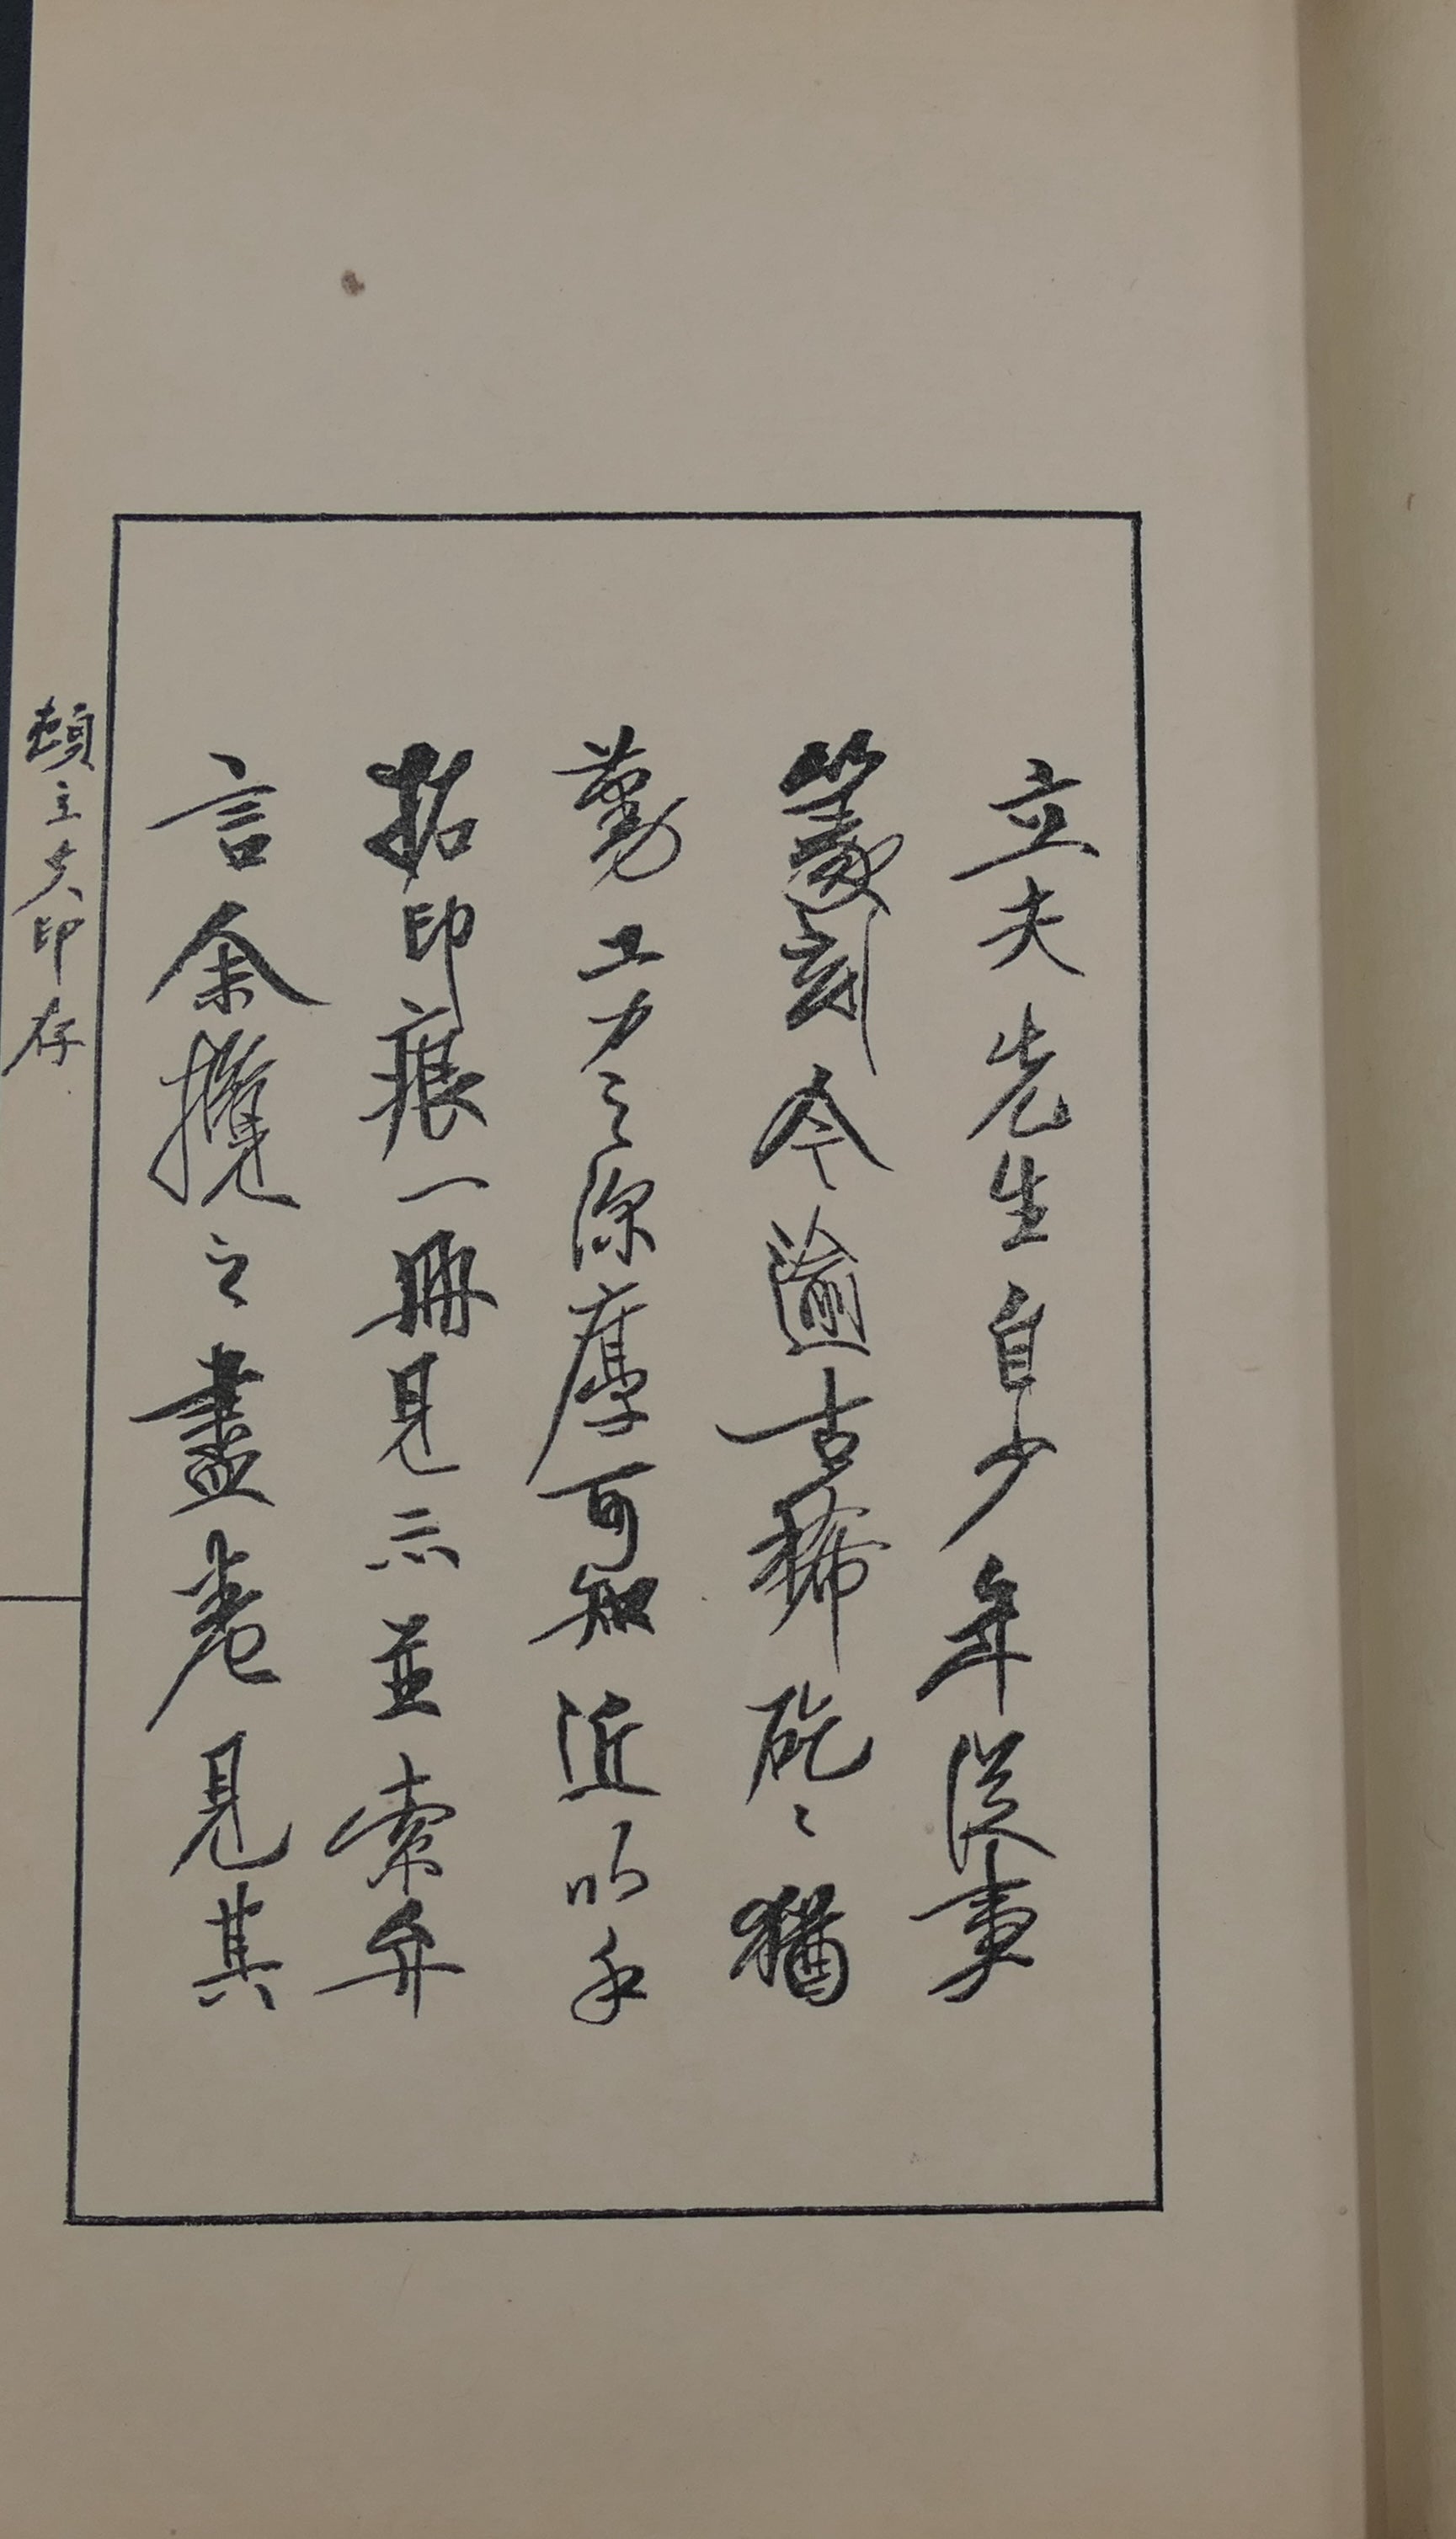 立夫先生自少年從事
篆刻今逾古稀矻〻猶
勤工力之深厚可知近以手
拓印痕一冊見示並索弁
言余攬之盡卷見其
立夫印存